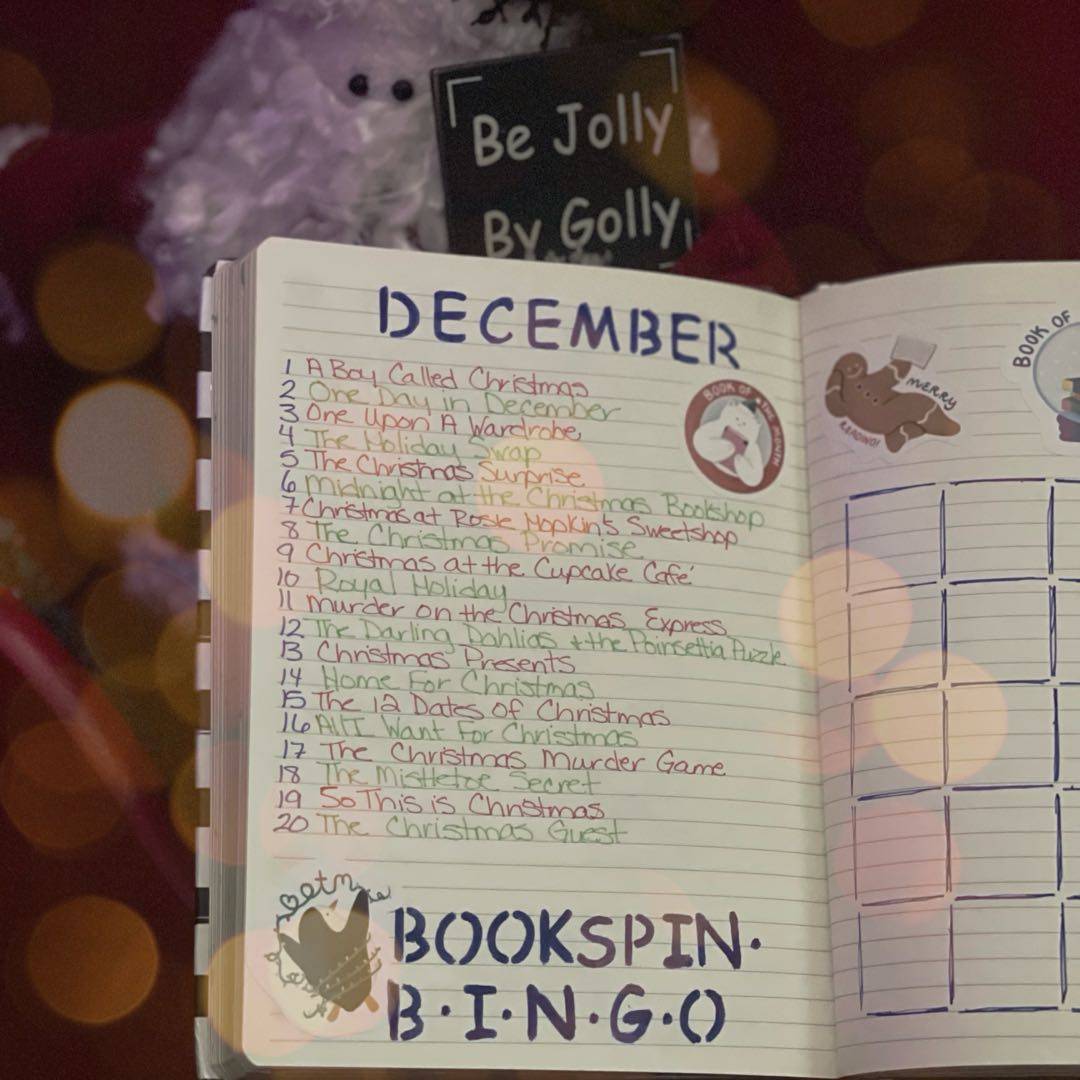 Be Jolly
By Golly!
DECEMBER
1 A Boy Called Christmas
2 One Day in December
3 One Upon A Wardrobe
4 The Holiday Swap
5 The Christmas Surprise
6 Midnight at the Christmas Bookshop
7 Christmas at Rosie Hopkin's Sweetshop
8 The Christmas Promise
9 Christmas at the Cupcake Café
10 Royal Holiday
11 Murder on the Christmas Express
12 The Darling Dahlias + the Poinsettia Puzzle
13 Christmas Presents
14 Home For Christmas
15 The 12 Dates of Christmas
16 All I Want For Christmas
17 The Christmas Murder Game
18 The Mistletoe Secret
19 So This is Christmas
20 The Christmas Guest
BOOK OF THE MONTH
BOOKSPIN.
B.I.N.G.O
MERRY
READING!
BOOK OF